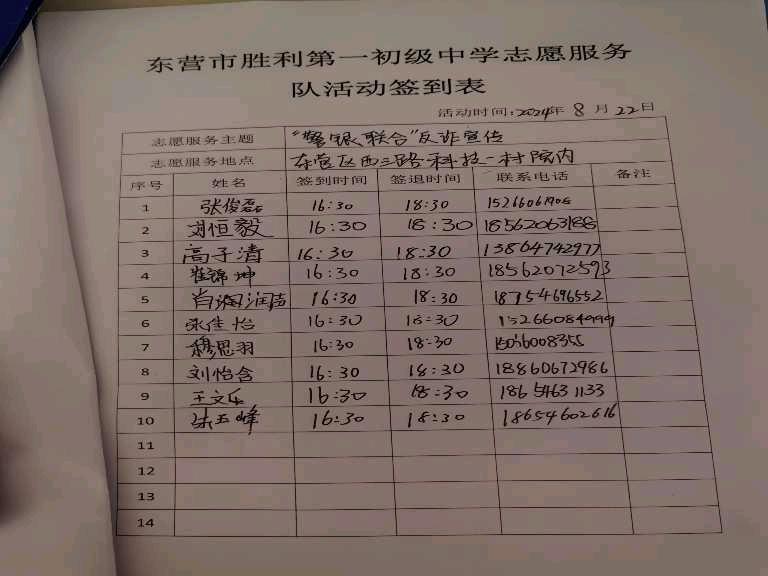 东营市胜利第一初级中学志愿服务
队活动签到表
活动时间:2024年 8 月 22日
志愿服务主题 "警银联合"反诈宣传
志愿服务地点 东营区西三路科技一村院内
序号 姓名 签到时间 签退时间 联系电话 备注
1 张俊磊 16:30 18:30 15266061908
2 刘恒毅 16:30 18:30 18562063188
3 高子清 16:30 18:30 13864742977
4 崔锦坤 16:30 18:30 18562072593
5 16:30 18:30 18754696552
6 佳怡 16:30 18:30 15266084999
7 穆思羽 16:30 18:30 15036008355
8 刘怡含 16:30 18:30 18860672986
9 王文乐 16:30 18:30 18654631133
10 16:30 18:30 18654602616
11
12
13
14